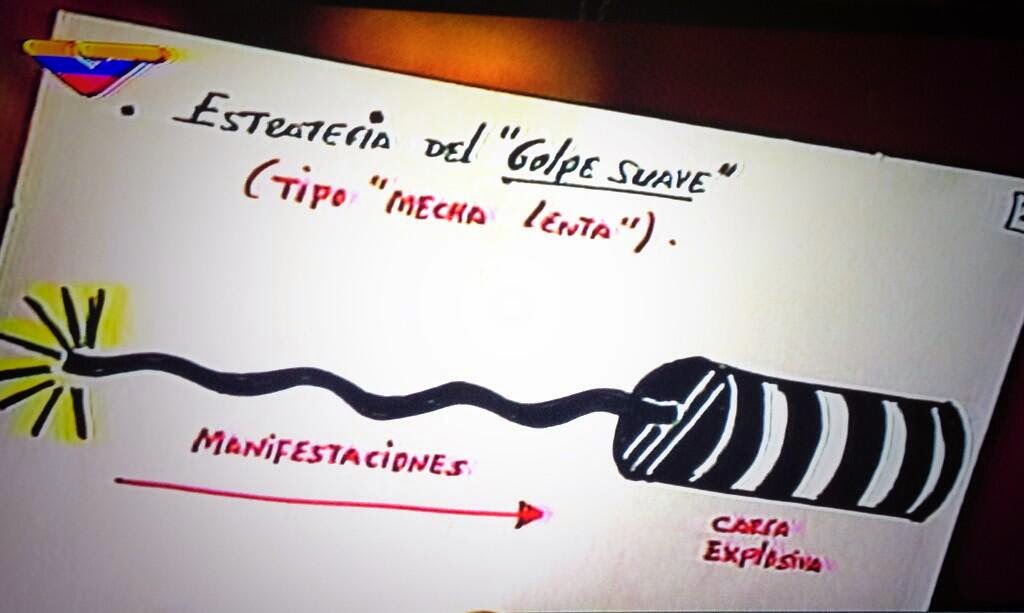 • ESTRATEGIA DEL "GOLPE SUAVE"
(TIPO "MECHA LENTA").
MANIFESTACIONES
CARGA
EXPLOSIVA